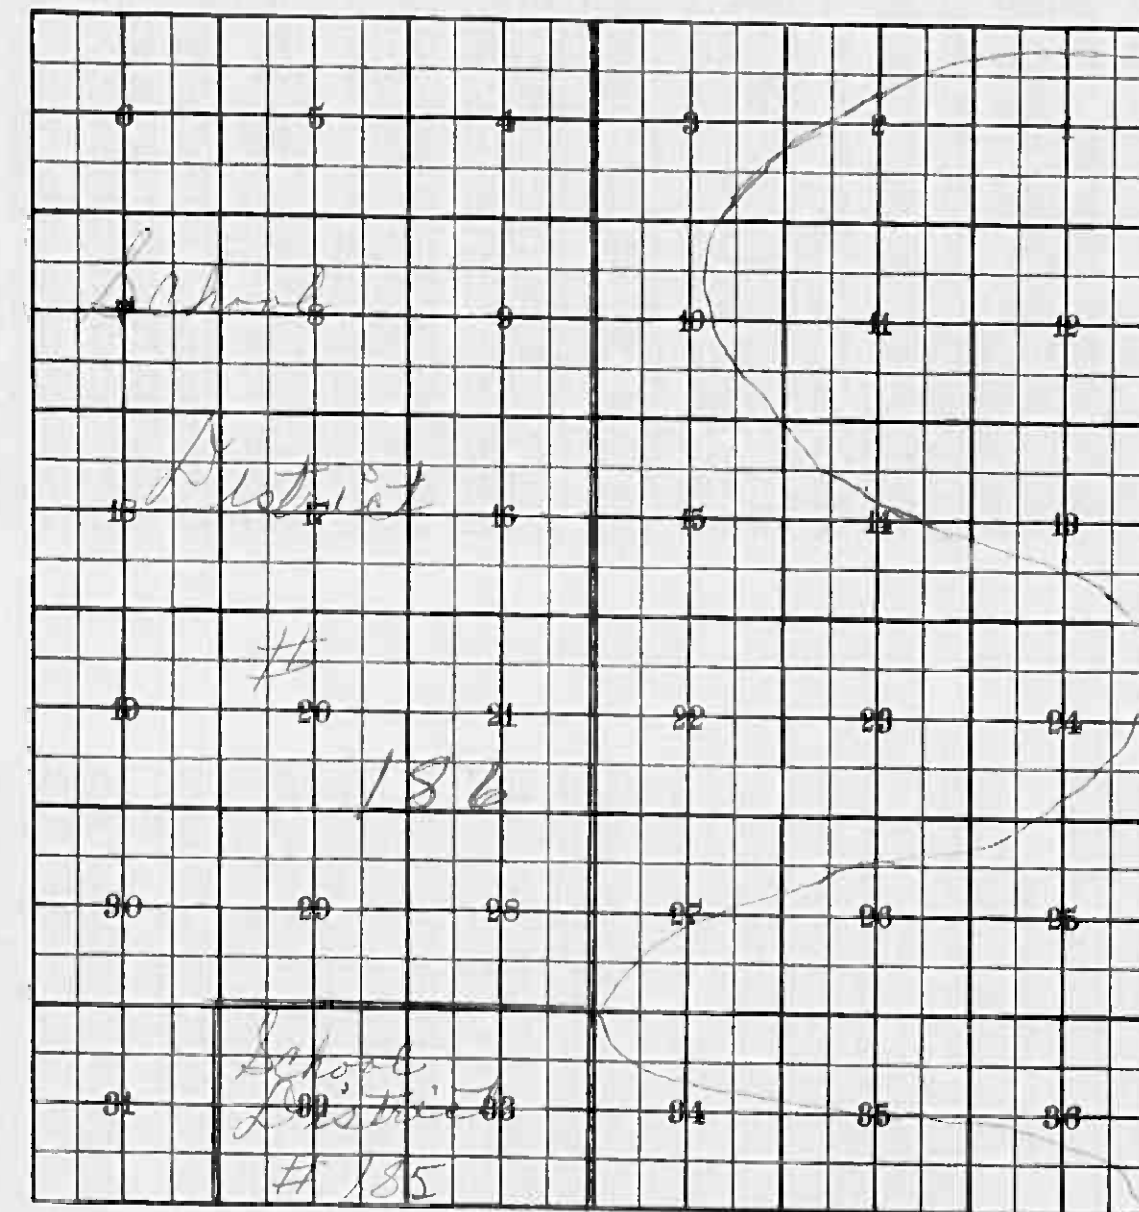 6 5 4 3 2 1
School
7 8 9 10 11 12
District
18 17 16 15 14 13
#
19 20 21 22 23 24
186
30 29 28 27 26 25
School
District
31 32 33 34 35 36
# 185